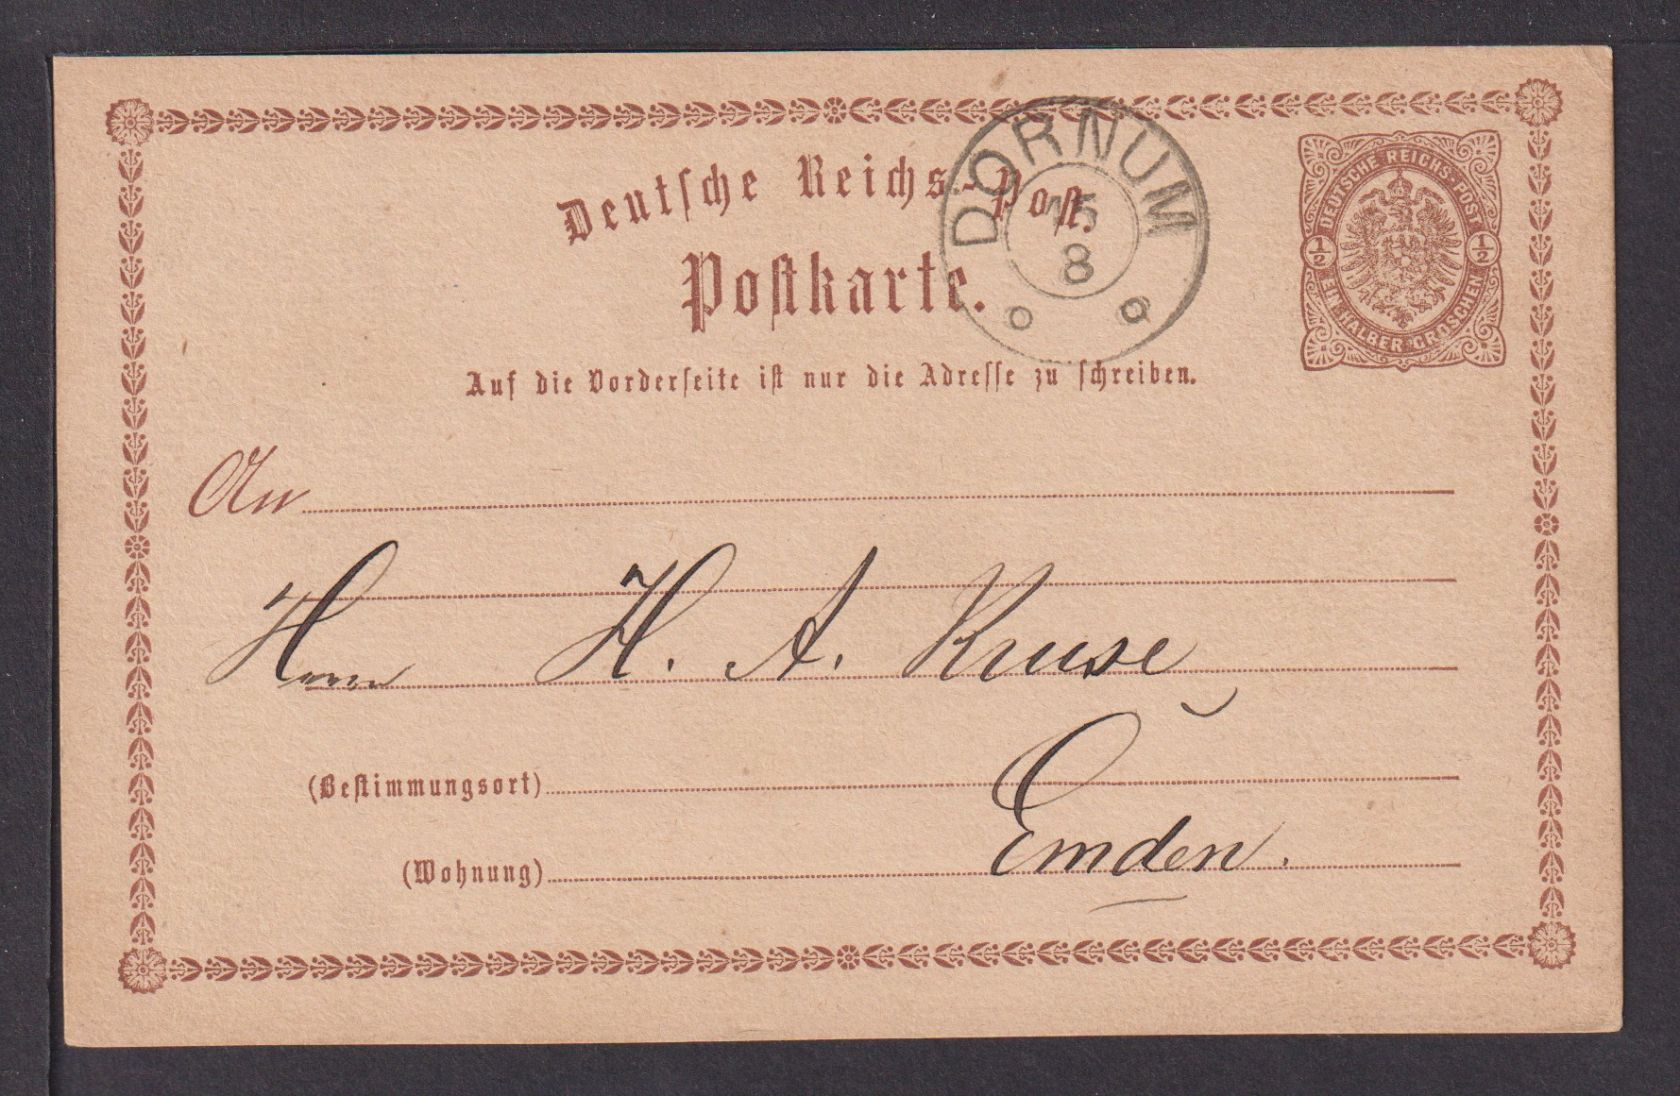 Deutsche Reichs-Post.
DORNUM
15
8
DEUTSCHE REICHS-POST
1/2 1/2
EIN HALBER GROSCHEN
Postkarte.
Auf die Vorderseite ist nur die Adresse zu schreiben.
An
Herrn H. A. Kruse
(Bestimmungsort)
Emden.
(Wohnung)